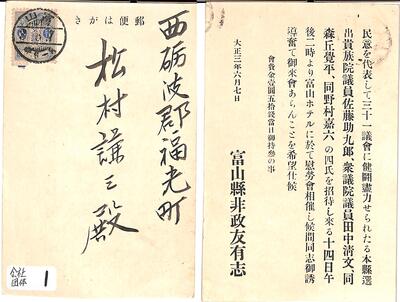 郵便はがき
西砺波郡福光町
松村謙三殿
会社
団体
1
民意を代表して三十一議會に健鬪盡力せられたる本縣選
出貴族院議員佐藤助九郎、衆議院議員田中清文、同
森丘覺平、同野村嘉六の四氏を招待し来る十四日午
後二時より富山ホテルに於て慰勞會相催し候間同志御誘
導奮て御來會あらんことを希望仕候
會費金壹圓五拾錢當日御持參の事
大正三年六月七日
富山縣非政友有志